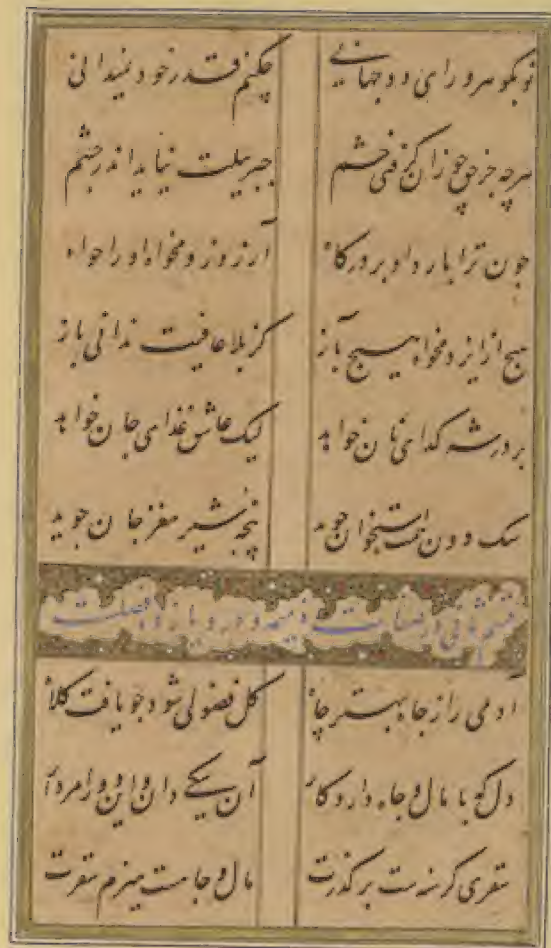 تو بگوهر ورای دو جهانی چکنم قدر خود نمیدانی
هرچه جز حق چو زان گرفتی خشم جبرییلت نیاید اندر چشم
چون ترا بار داد بر درگاه آرزو زو مخواه او را خواه
هیچ از ایزد مخواه هیچ باز کز بلا عافیت ندانی باز
بر در شه گدای نان خواهد لیک عاشق غذای جان خواهد
سک دون همت استخوان جوید پنجه شیر مغز جان جوید
قسم ثانی در صفات ذمیمه و در و یازده فصلست
آدمی را ز جاه بهتر چاه کل فضولی شود چو یافت کلاه
دل که با مال و جاه دارد کار آن یکی دان و این دو را مردار
سقری گرسنه ست بر گذرت مال و جاهست هیزم سقرت